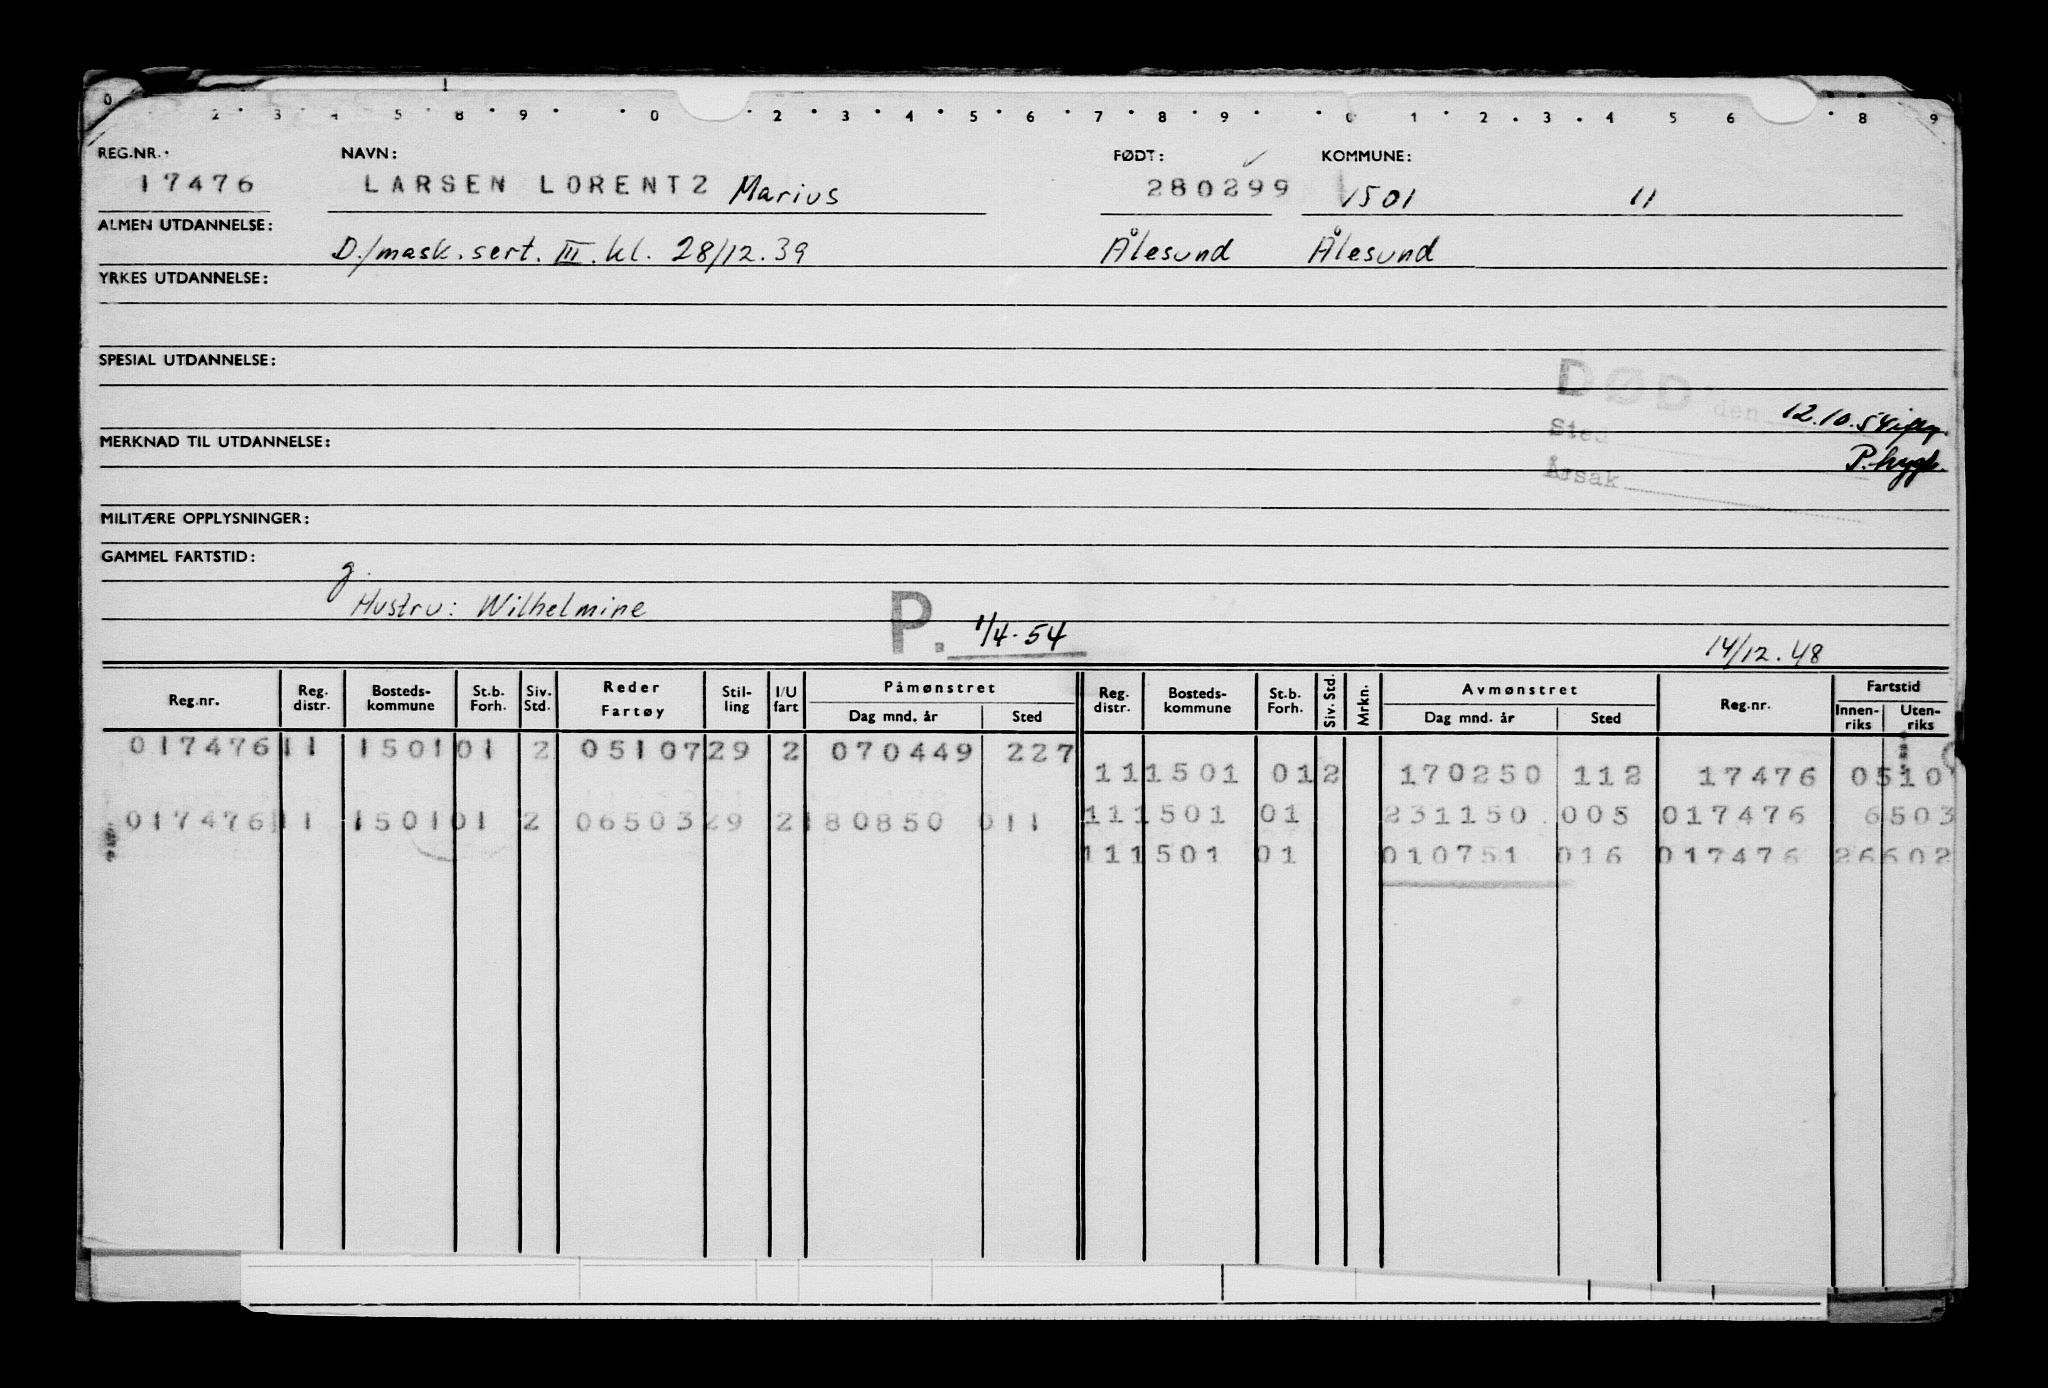 0 2 3 4 5 8 9 0 2 3 4 5 6 7 8 9 0 1 2 3 4 5 6 8 9
REG.NR.: NAVN: FØDT: KOMMUNE:
17476 LARSEN LORENTZ Marius 280299 1501 11
ALMEN UTDANNELSE:
D./mask. sert. III. kl. 28/12.39 Ålesund Ålesund
YRKES UTDANNELSE:
SPESIAL UTDANNELSE:
DØD den 12.10.54 iflg.
MERKNAD TIL UTDANNELSE: Sted P.trygd.
Årsak
MILITÆRE OPPLYSNINGER:
GAMMEL FARTSTID:
g.
Hustru: Wilhelmine
P. 1/4-54 14/12.48
Reg.nr. Reg. distr. Bosteds- kommune St.b. Forh. Siv. Std. Reder Fartøy Stil- ling I/U fart Påmønstret Dag mnd. år Sted Reg. distr. Bosteds- kommune St.b. Forh. Siv. Std. Mrkn. Avmønstret Dag mnd. år Sted Reg.nr. Fartstid Innen- riks Uten- riks
017476 11 1501 01 2 05107 29 2 070449 227
11 1501 01 2 170250 112 17476 0510
017476 11 1501 01 2 06503 29 2 180850 011
11 1501 01 231150 005 017476 6503
11 1501 01 010751 016 017476 26602